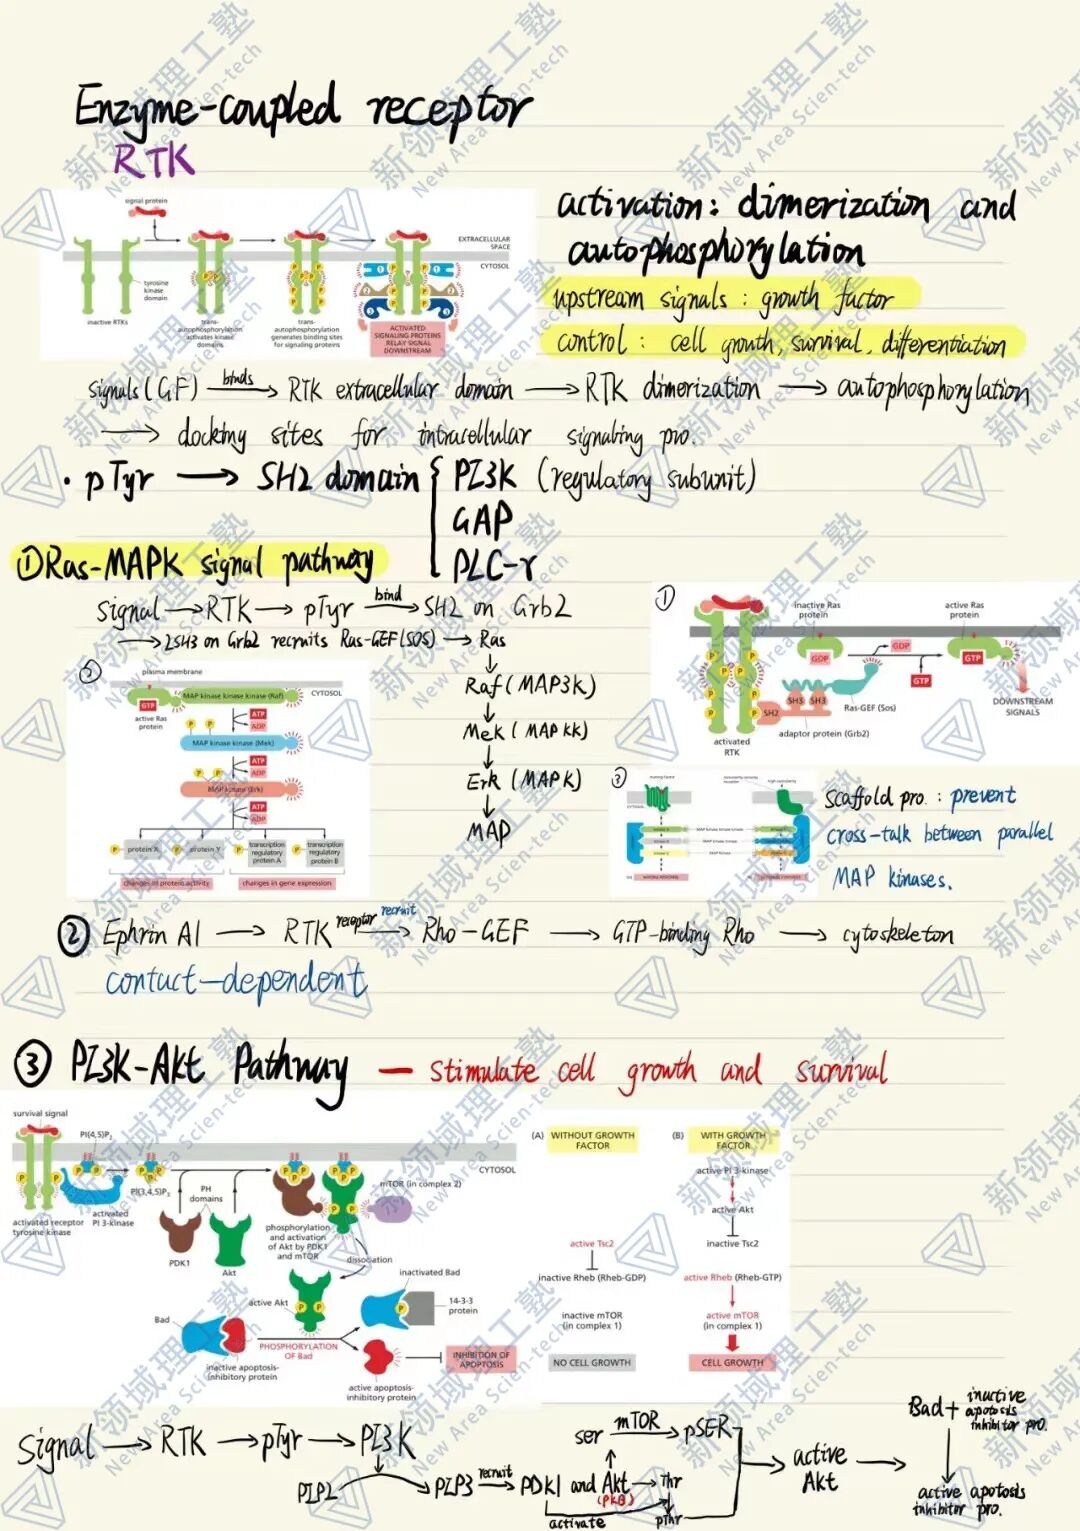 Enzyme-coupled receptor
RTK
signal protein
EXTRACELLULAR
SPACE
CYTOSOL
tyrosine
kinase
domain
inactive RTKs
trans-
autophosphorylation
activates kinase
domains
trans-
autophosphorylation
generates binding sites
for signaling proteins
ACTIVATED
SIGNALING PROTEINS
RELAY SIGNAL
DOWNSTREAM
activation: dimerization and
autophosphorylation
upstream signals: growth factor
control: cell growth, survival, differentiation
signals (GF) binds → RTK extracellular domain → RTK dimerization → autophosphorylation
→ docking sites for intracellular signaling pro.
· pTyr → SH2 domain { PI3K (regulatory subunit)
GAP
PLC-γ
①Ras-MAPK signal pathway
signal → RTK → pTyr bind → SH2 on Grb2
→ 2SH3 on Grb2 recruits Ras-GEF(SOS) → Ras
↓
Raf (MAP3K)
↓
Mek (MAPKK)
↓
Erk (MAPK)
↓
MAP
①
inactive Ras
protein
active Ras
protein
GDP
GDP
GTP
GTP
SH3 SH3
SH2
Ras-GEF (Sos)
adaptor protein (Grb2)
activated
RTK
DOWNSTREAM
SIGNALS
②
plasma membrane
CYTOSOL
GTP
MAP kinase kinase kinase (Raf)
active Ras
protein
ATP
ADP
MAP kinase kinase (Mek)
ATP
ADP
MAP kinase (Erk)
ATP
ADP
protein X
protein Y
transcription
regulatory
protein A
transcription
regulatory
protein B
changes in protein activity
changes in gene expression
③
scaffold pro.: prevent
cross-talk between parallel
MAP kinases.
② Ephrin A1 → RTK receptor recruit → Rho-GEF → GTP-binding Rho → cytoskeleton
contact-dependent
③ PI3K-Akt Pathway — stimulate cell growth and survival
survival signal
PI(4,5)P2
PI(3,4,5)P3
CYTOSOL
activated receptor
tyrosine kinase
activated
PI 3-kinase
PH
domains
PDK1
Akt
mTOR (in complex 2)
phosphorylation
and activation
of Akt by PDK1
and mTOR
dissociation
active Akt
inactivated Bad
14-3-3
protein
Bad
PHOSPHORYLATION
OF Bad
inactive apoptosis-
inhibitory protein
active apoptosis-
inhibitory protein
INHIBITION OF
APOPTOSIS
(A) WITHOUT GROWTH
FACTOR
active Tsc2
inactive Rheb (Rheb-GDP)
inactive mTOR
(in complex 1)
NO CELL GROWTH
(B) WITH GROWTH
FACTOR
active PI 3-kinase
active Akt
inactive Tsc2
active Rheb (Rheb-GTP)
active mTOR
(in complex 1)
CELL GROWTH
Signal → RTK → pTyr → PI3K
PIP2 → PIP3 recruit → PDK1 and Akt → Thr
(PKB)
activate
pThr
ser mTOR → pSER
→ active
Akt →
Bad + inactive
apotosis
inhibitor pro.
↓
active apotosis
inhibitor pro.
新领域理工塾
New Area Scien-tech